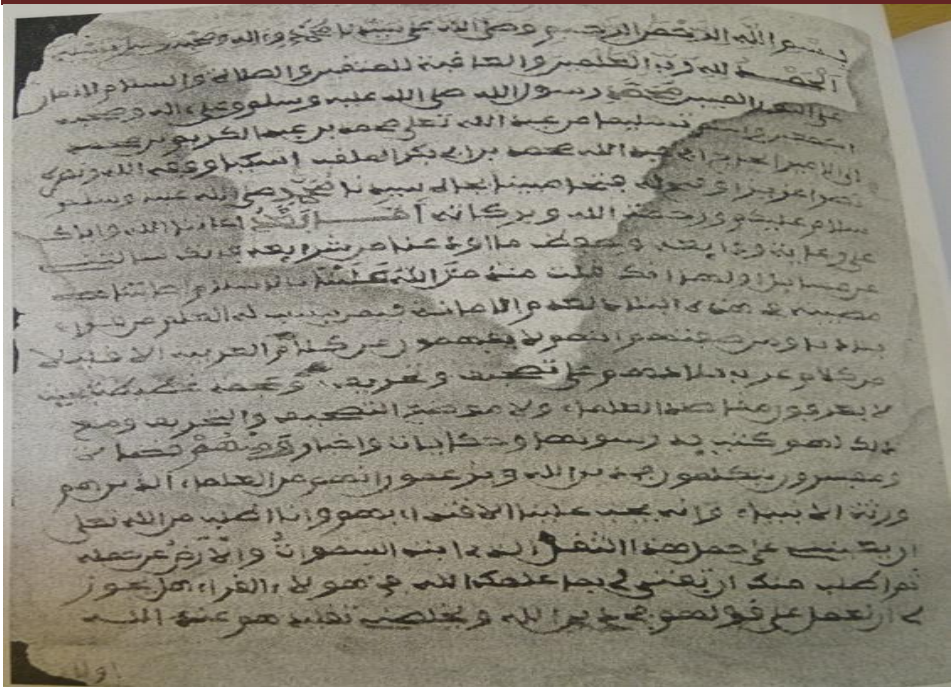 بسم الله الرحمن الرحيم وصلى الله على سيدنا محمد وءاله وصحبه وسلم
الحمد لله رب العلمين والعاقبة للمتقين والصلاة والسلام
محمد رسول الله صلى الله عليه وسلم وعلى ءاله وصحبه
من عبد الله تعلى محمد بن عبد الكريم بن محمد
الى الامير عبد الله محمد بن ابي بكر الملقب اسكيا وفقه الله ونصره
نصرا عزيزا وفتح له فتحا مبينا بجاه سيدنا محمد صلى الله عليه وسلم
سلام عليكم ورحمة الله وبركاته أما بعد اعاننا الله واياك
على رعاية ودايعه وحفظ ما اودع عندنا من شرايعه فانك سالتني
عن مسايل اولها انك قلت منذ من الله علينا بالاسلام اصابتنا
مصيبة في هذه البلاد لعدم الامانة فيمن ينسب له العلم من قراء
بلادنا ومن صفتهم انهم لا يفهمون من كلام العربية الا قليلا
من كلام عرب بلادهم على تصحيف وتحريف وعجمة عظيمة بحيث
لا يعرفون مقاصد العلماء ولا موضع التصحيف والتحريف ومع
ذلك لهم كتب يدرسونها وحكايات واخبار ومنهم قضات
ومفسرون يتكلمون في دين الله ويزعمون انهم من العلماء الذين هم
ورثة الانبياء وانه يجب علينا الاقتداء بهم وانا اطلب من الله تعلى
ان يعينني على حمل هذا الثقل الذي ابت السموات والأرض عن حمله
ثم اطلب منك ان تفتني بما علمك الله في هولاء القراء هل يجوز
لي ان نعمل على قولهم في دين الله ويخلصني تقليدهم عند الله